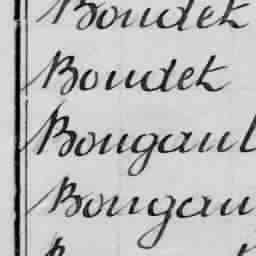 Boudet
Boudet
Bougaul
Bougau